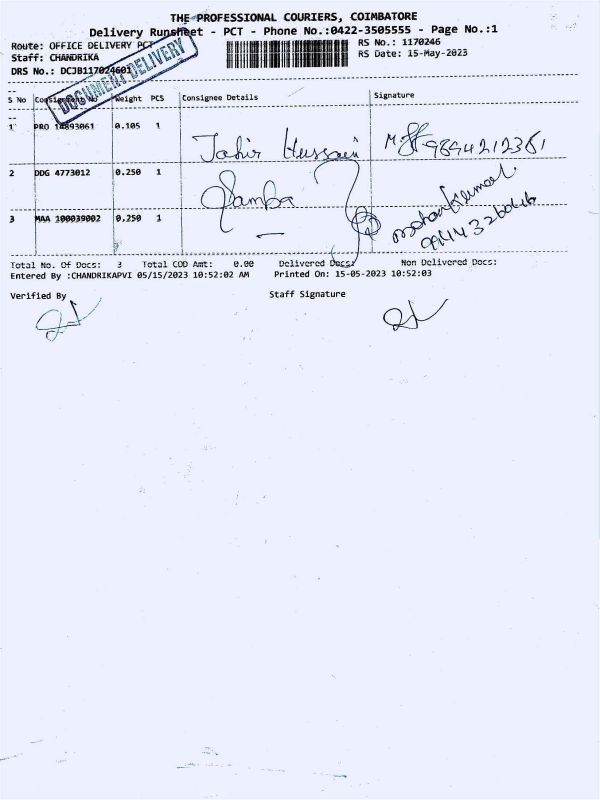 THE PROFESSIONAL COURIERS, COIMBATORE
Delivery Runsheet - PCT - Phone No.:0422-3505555 - Page No.:1
Route: OFFICE DELIVERY PCT
RS No.: 1170246
Staff: CHANDRIKA
RS Date: 15-May-2023
DRS No.: DCJB117024601
DOCUMENT DELIVERY
S No Consignment No Weight PCS Consignee Details Signature
1 PRO 14893061 0.105 1 Tahir Hussain 9894212361
2 DDG 4773012 0.250 1
3 MAA 100039002 0.250 1
Total No. Of Docs: 3 Total COD Amt: 0.00 Delivered Docs: Non Delivered Docs:
Entered By :CHANDRIKAPVI 05/15/2023 10:52:02 AM Printed On: 15-05-2023 10:52:03
Verified By Staff Signature